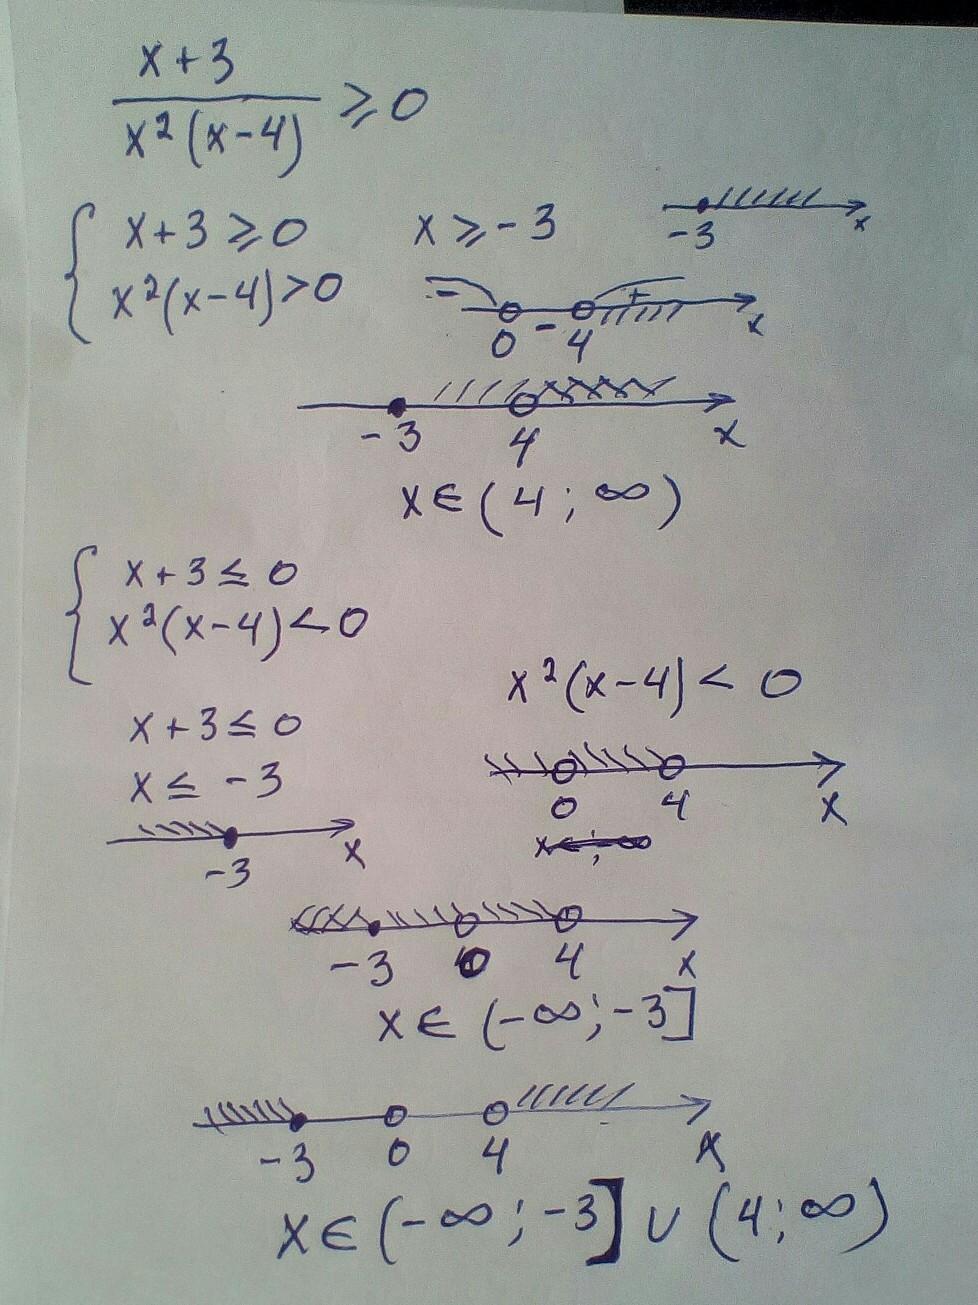 x+3
x²(x-4) ⩾ 0
{ x+3 ⩾ 0 x ⩾ -3 -3 x
x²(x-4) > 0 - + x
0 - 4
-3 4 x
x ∈ (4; ∞)
{ x+3 ≤ 0
x²(x-4) < 0
x²(x-4) < 0
x+3 ≤ 0
x ≤ -3
0 4 x
x ∈ ; ∞
-3 x
-3 0 4 x
x ∈ (-∞; -3]
-3 0 4 x
x ∈ (-∞; -3] ∪ (4; ∞)